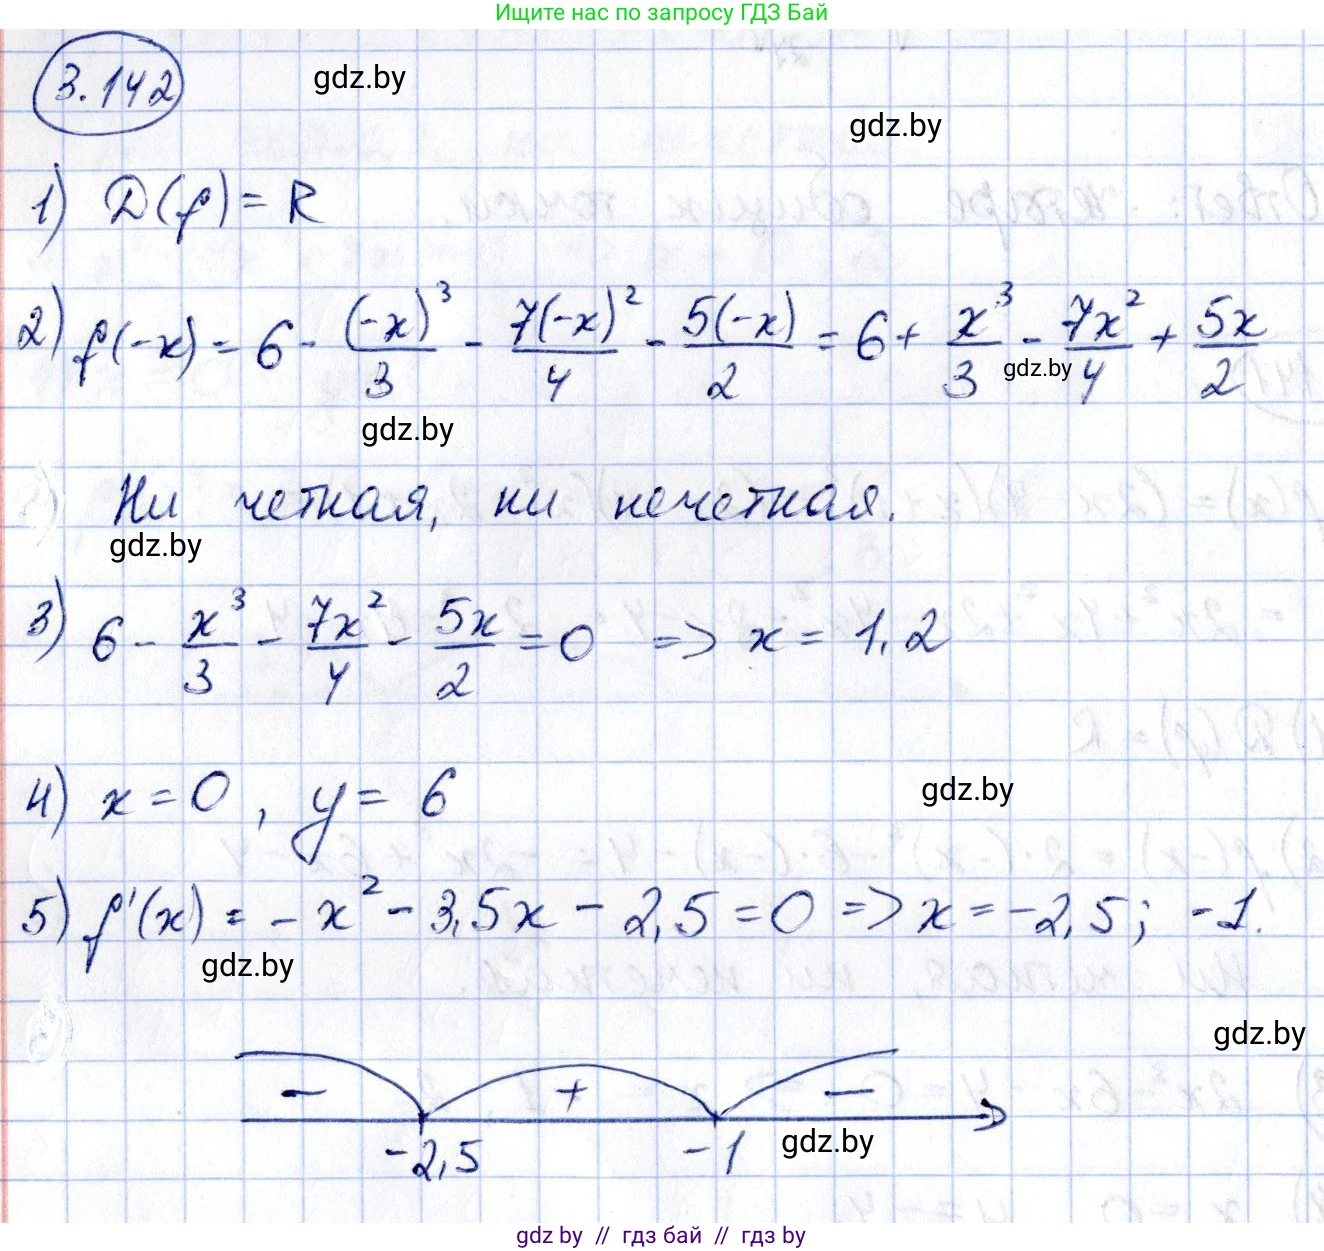 Ищите нас по запросу ГДЗ Бай
3.142
gdz.by
gdz.by
1) D(f) = R
2) f(-x) = 6 - (-x)³/3 - 7(-x)²/4 - 5(-x)/2 = 6 + x³/3 - 7x²/4 + 5x/2
gdz.by
gdz.by
Ни четная, ни нечетная.
gdz.by
3) 6 - x³/3 - 7x²/4 - 5x/2 = 0 => x = 1,2
4) x = 0, y = 6
gdz.by
5) f'(x) = -x² - 3,5x - 2,5 = 0 => x = -2,5; -1.
gdz.by
gdz.by
- + -
-2,5 -1
gdz.by
gdz by // гдз бай // гдз by